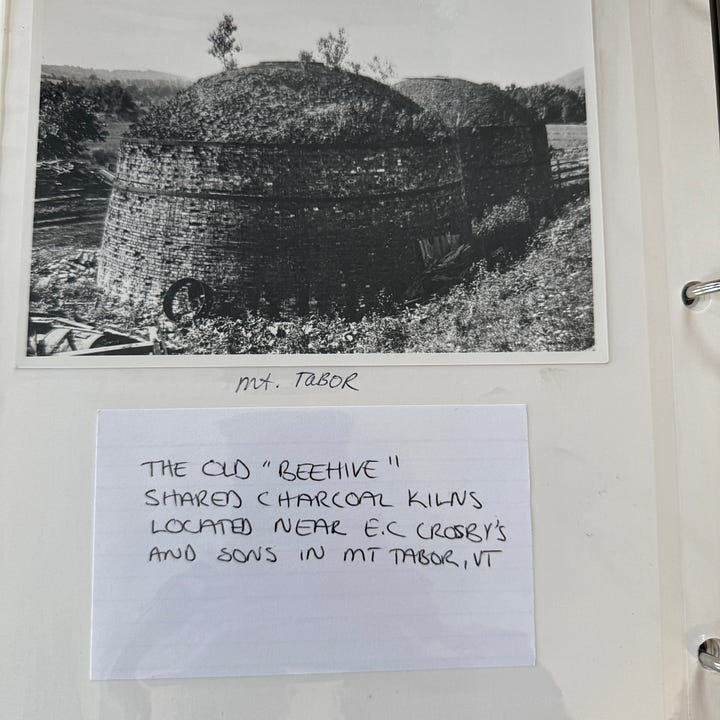 mt. TABOR
THE OLD "BEEHIVE"
SHARED CHARCOAL KILNS
LOCATED NEAR E.C CROSBY'S
AND SONS IN MT TABOR, VT